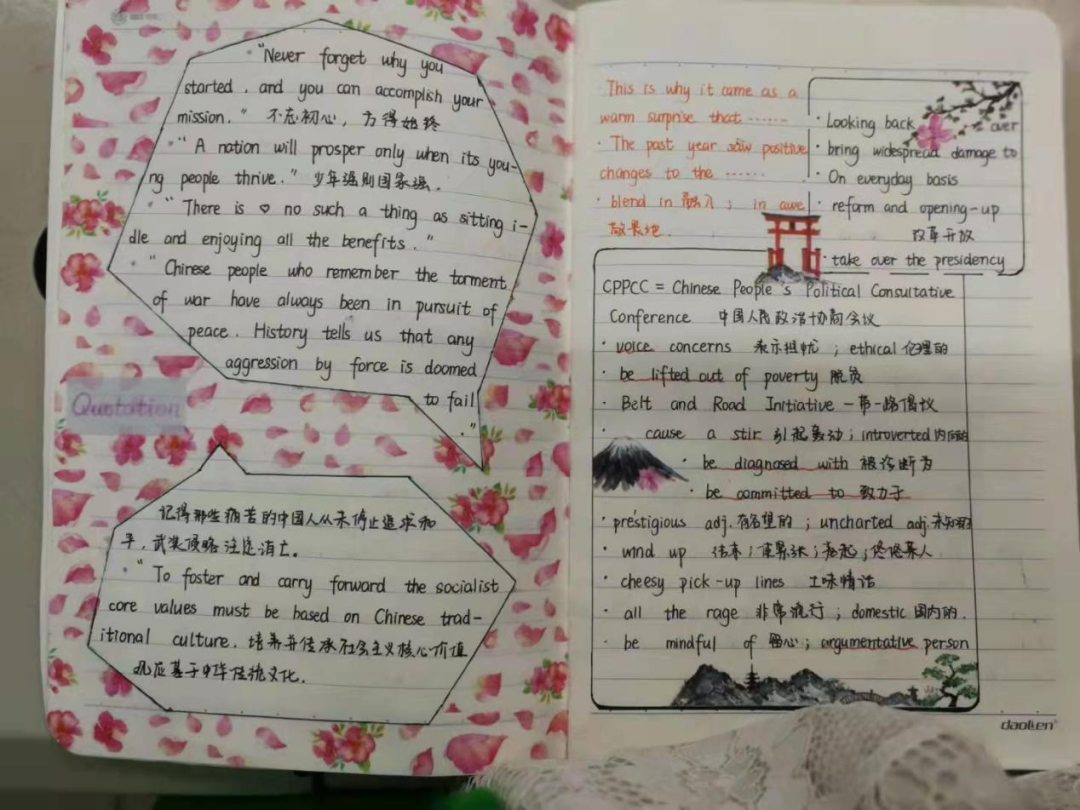 "Never forget why you
started, and you can accomplish your
mission." 不忘初心，方得始终
"A nation will prosper only when its you-
ng people thrive." 少年强则国家强.
"There is no such a thing as sitting i-
dle and enjoying all the benefits."
"Chinese people who remember the torment
of war have always been in pursuit of
peace. History tells us that any
aggression by force is doomed
to fail
."
Quotation
记得那些痛苦的中国人从未停止追求和
平，武装侵略注定消亡。
"To foster and carry forward the socialist
core values must be based on Chinese trad-
itional culture. 培养并传承社会主义核心价值
观应基于中华传统文化.
This is why it came as a
warm surprise that ......
· The past year saw positive
changes to the ......
· blend in 融入; in awe
敬畏地.
· Looking back over
· bring widespread damage to
· On everyday basis
· reform and opening-up
改革开放
· take over the presidency
CPPCC = Chinese People's Political Consultative
Conference 中国人民政治协商会议
· voice concerns 表示担忧; ethical 伦理的
· be lifted out of poverty 脱贫
· Belt and Road Initiative 一带一路倡议
· cause a stir 引起轰动; introverted 内向的
· be diagnosed with 被诊断为
· be committed to 致力于
· prestigious adj. 有名望的; uncharted adj. 未知的
· wind up 结束; 使紧张; 卷起;
· cheesy pick-up lines 土味情话
· all the rage 非常流行; domestic 国内的.
· be mindful of 留心; argumentative person
daolen